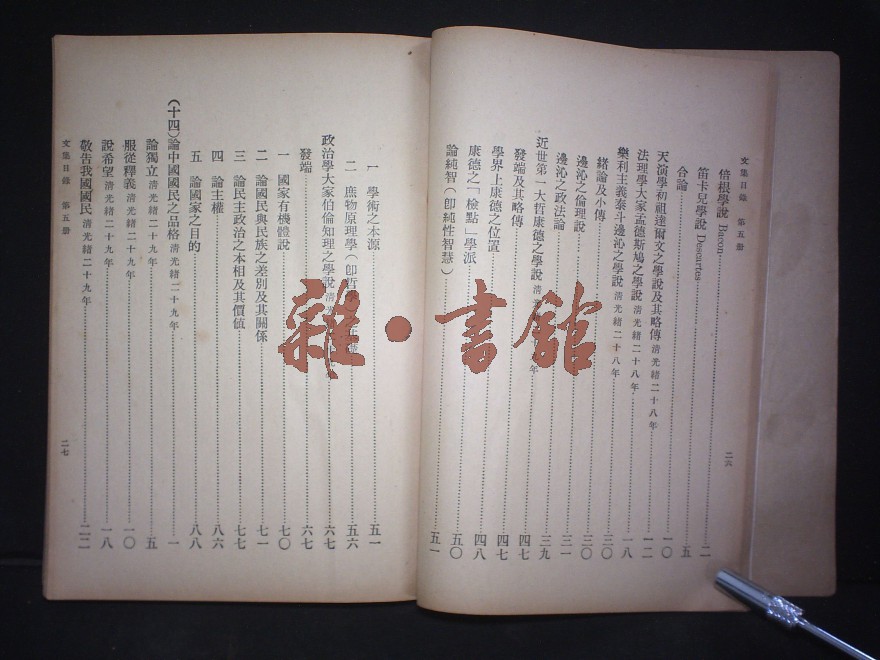 文集目錄 第五册
二六
倍根學說 Bacon 二
笛卡兒學說 Descartes
合論 五
天演學初祖達爾文之學說及其略傳 清光緒二十八年 一〇
法理學大家孟德斯鳩之學說 清光緒二十八年 一二
樂利主義泰斗邊沁之學說 清光緒二十八年 一八
緒論及小傳 三〇
邊沁之倫理說 三〇
邊沁之政法論 三一
近世第一大哲康德之學說 清光 年 三九
發端及其略傳 四七
學界上康德之位置 四七
康德之「檢點」學派 四八
論純智(卽純性智慧) 五〇
五一
一 學術之本源 五一
二 庶物原理學(卽哲 五六
政治學大家伯倫知理之學說 清光 六七
發端 六七
一 國家有機體說 七〇
二 論國民與民族之差別及其關係 七一
三 論民主政治之本相及其價値 七七
四 論主權 八六
五 論國家之目的 八八
(十四)論中國國民之品格 清光緒二十九年 一
論獨立 清光緒二十九年 五
服從釋義 清光緒二十九年 一〇
說希望 清光緒二十九年 一八
敬告我國國民 清光緒二十九年 二二
文集目錄 第五册
二七
雜·書館